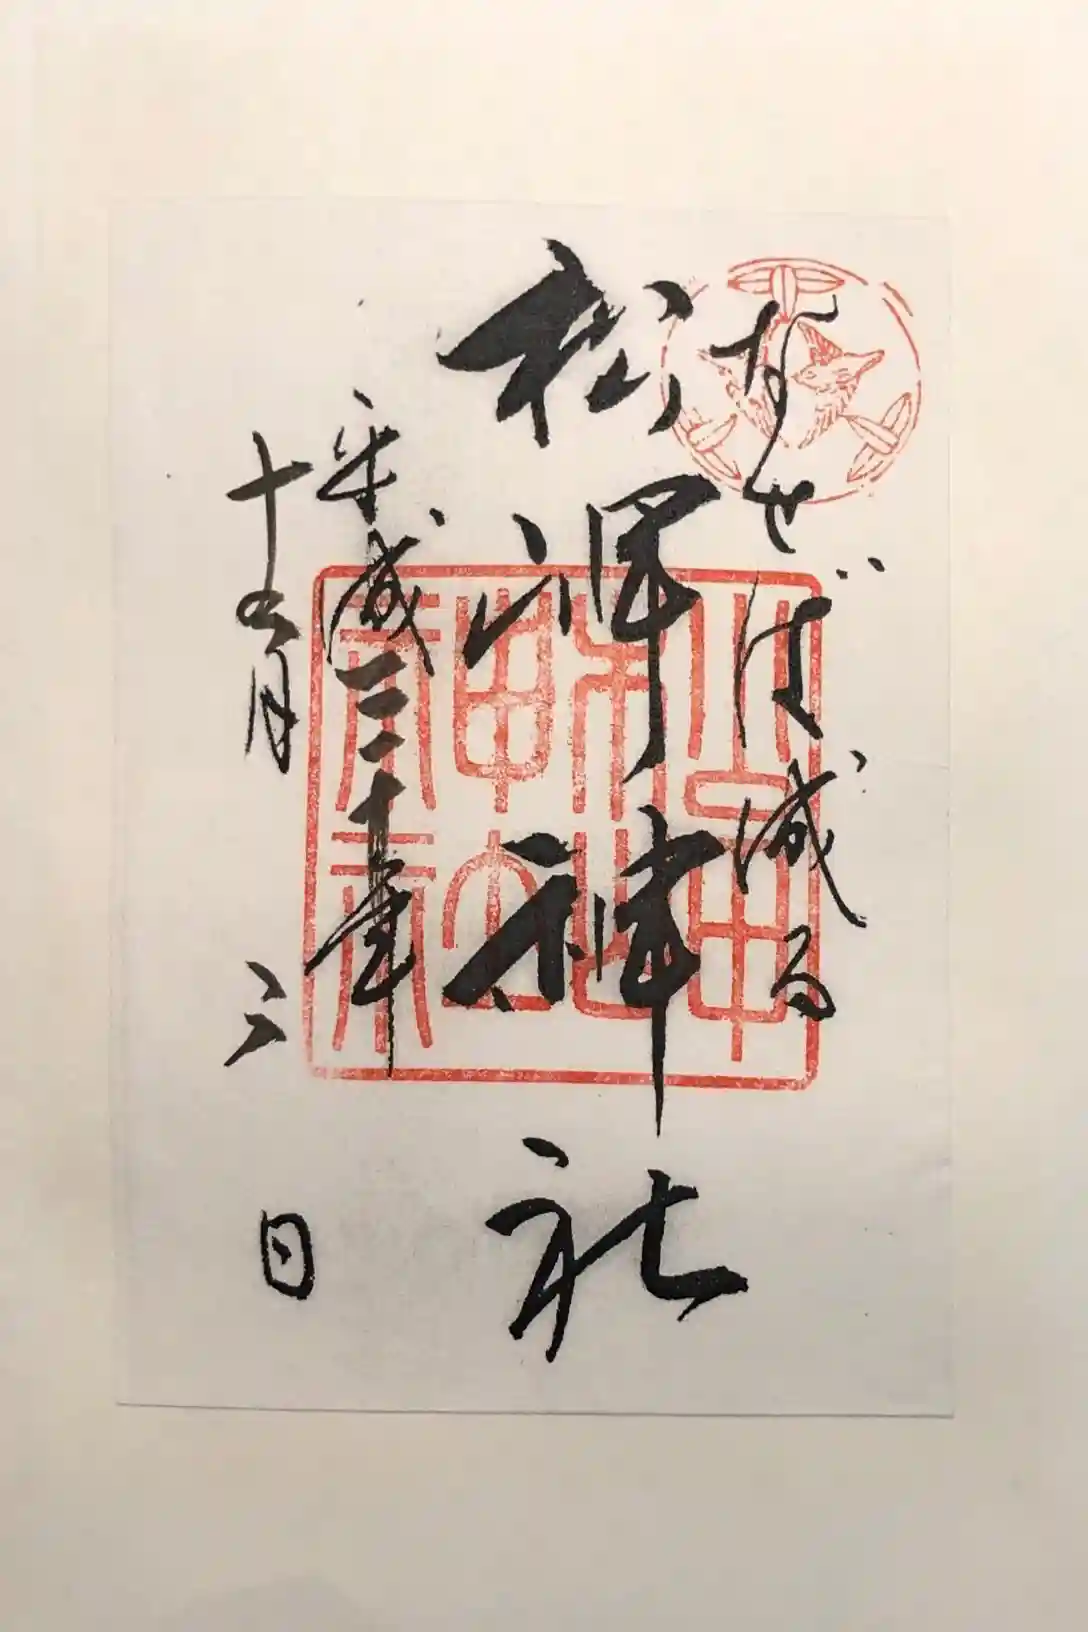 なせば成る
松岬神社
平成三十年
月 日
松岬神社